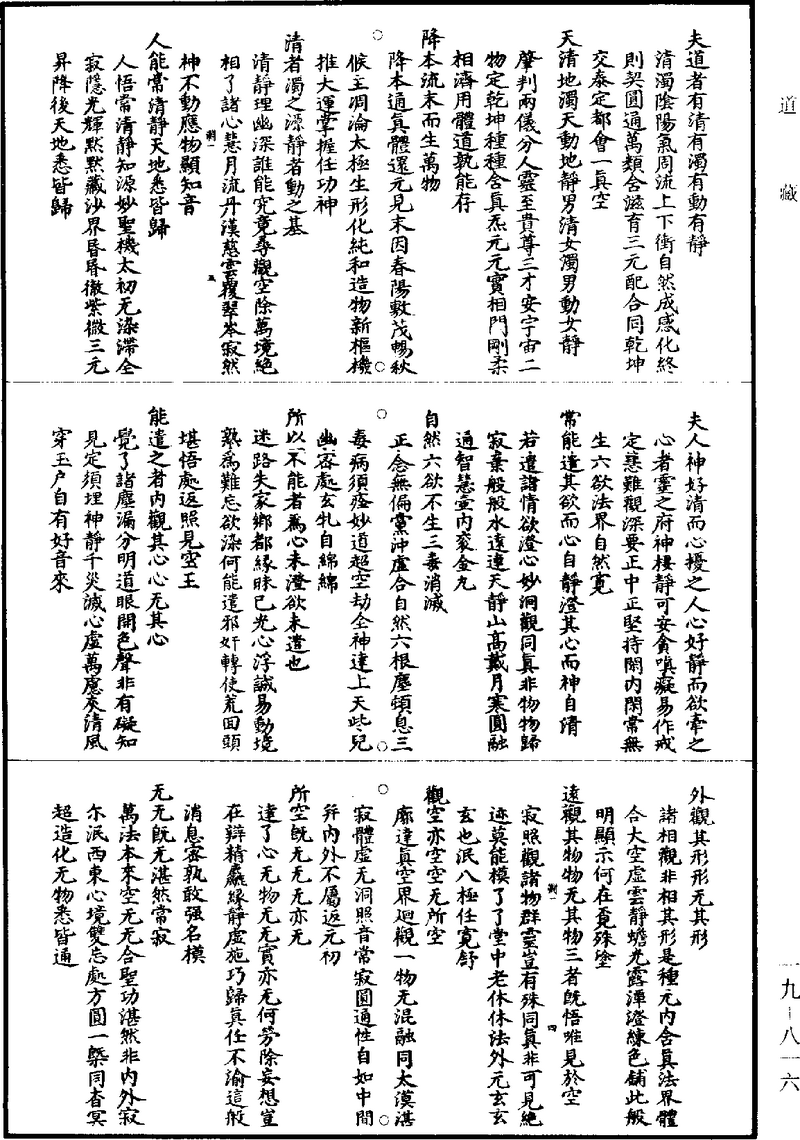 道藏
夫道者有清有濁有動有靜
清濁陰陽氣周流上下衝自然成感化終
則契圓通萬類含滋育三元配合同乾坤
交泰定都會一真空
天清地濁天動地靜男清女濁男動女靜
肇判兩儀分人靈至貴尊三才安宇宙二
物定乾坤種種含真炁元元實相門剛柔
相濟用體道孰能存
降本流末而生萬物
降本通真體還元見末因春陽敷茂暢秋
候主凋淪太極生形化純和造物新樞機
推大運掌握任功神
清者濁之源靜者動之基
清靜理幽深誰能究竟尋觀空除萬境絕
相了諸心慧月流丹漢慈雲覆翠岑寂然
神不動應物顯知音
人能常清靜天地悉皆歸
人悟常清靜知源妙聖機太初无染滯全
寂隱光輝默默藏沙界昏昏徹紫微三元
昇降後天地悉皆歸
夫人神好清而心擾之人心好靜而欲牽之
心者靈之府神棲靜可安貪嗔癡易作戒
定慧難觀深要正中正堅持閑內閑常無
生六欲法界自然寬
常能遣其欲而心自靜澄其心而神自清
若遣諸情欲澄心妙洞觀同真非物物歸
寂棄般般水遠連天靜山高戴月寒圓融
通智慧壺內衮金丸
自然六欲不生三毒消滅
正念無偏黨沖虛合自然六根塵頓息三
毒病須痊妙道超空劫全神達上天些兒
幽密處玄牝自綿綿
所以不能者為心未澄欲未遣也
迷路失家鄉都緣昧已光心浮誠易動境
熟為難忘欲染何能遣邪奸轉使荒回頭
堪悟處返照見空王
能遣之者內觀其心心无其心
覺了諸塵漏分明道眼開色聲非有礙知
見定須埋神靜千災滅心虛萬慮灰清風
穿玉户自有好音來
外觀其形形无其形
諸相觀非相其形是種元內含真法界體
合大空虛雲靜蟾光露渾澄練色鋪此般
明顯示何在覓殊塗
遠觀其物物无其物三者既悟唯見於空
寂照觀諸物群靈豈有殊同真非可見絕
迹莫能模了了堂中老休休法外元玄玄
玄也泯八極任寬舒
觀空亦空空无所空
廓達真空界廻觀一物无混融同太漠湛
寂體虛无洞照音常寂圓通性自如中間
并內外不屬返元初
所空既无无无亦无
達了心无物无无實亦无何勞除妄想豈
在辯精麤緣靜虛施巧歸真任不渝這般
消息密孰敢强名模
无无既无湛然常寂
萬法本來空无无合聖功湛然非內外寂
尔泯西東心境雙忘處方圓一槩同杳冥
超造化无物悉皆通
一九－八一六